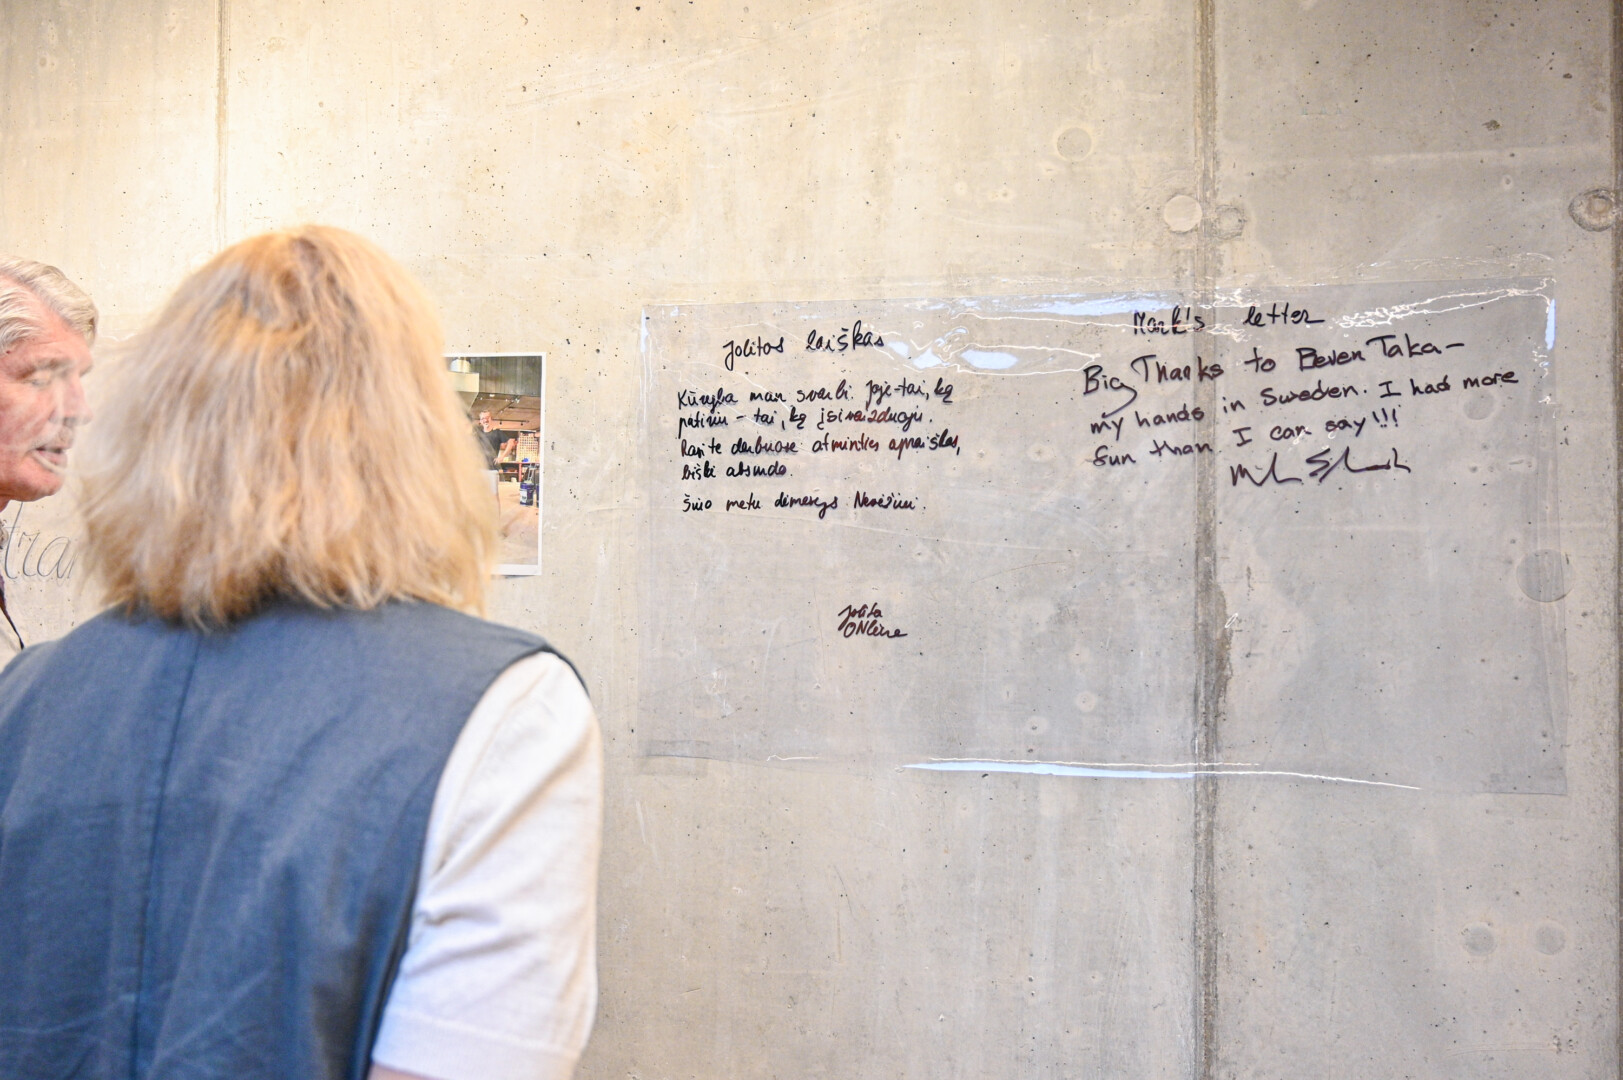 Jolitos laiškas
Kūryba man svarbi. Joje - tai, ką
patiriu - tai, ką įsivaizduoju.
Rasite darbuose atminties apraiškas,
biški absurdo.
Šiuo metu dėmesys Neržimui.
Jolita
ONline
Mark's letter
Big Thanks to Beven Taka -
my hands in Sweden. I had more
fun than I can say!!!
tra